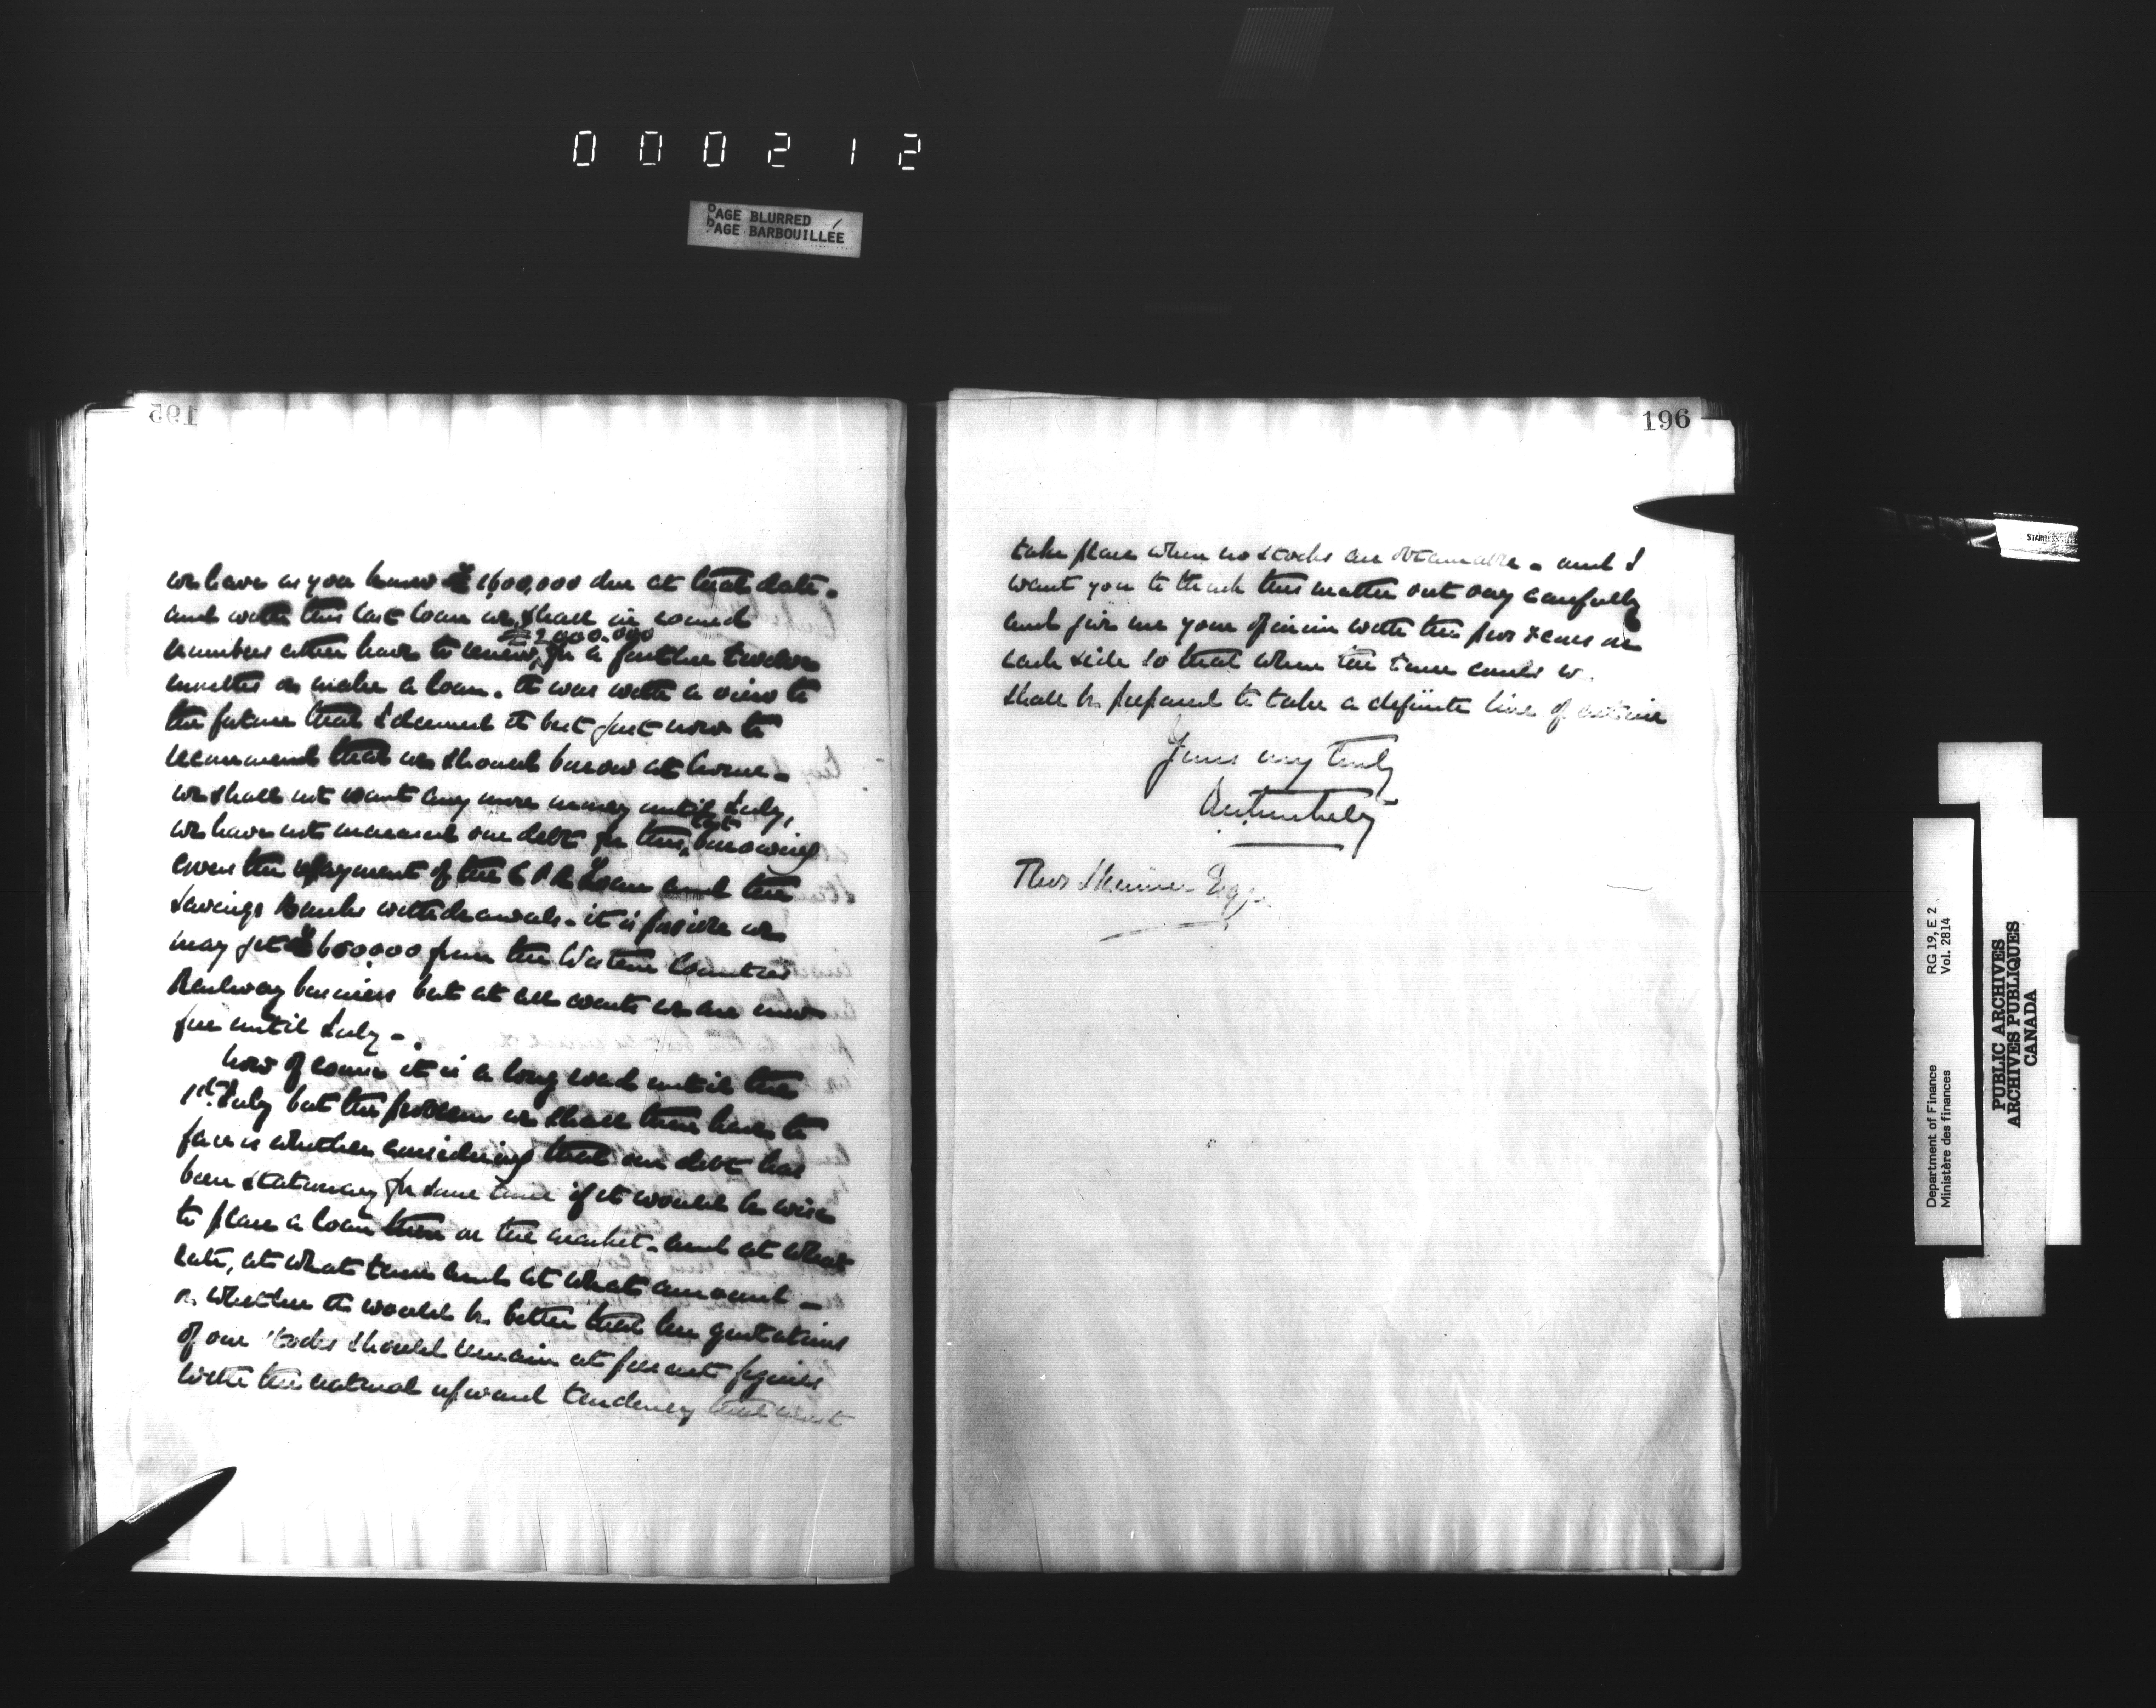 000212
PAGE BLURRED
PAGE BARBOUILLÉE
195
we have as you know £1600,000 due at that date.
and with this last loan we shall in round
£2,000,000
numbers either have to renew, for a further twelve
months or make a loan. It was with a view to
the future that I deemed it best just now to
recommend that we should borrow at home.
we shall not want any more money until July,
last
we have not increased our debt for this borrowing
covers the repayment of the C P R loan and the
Savings Banks withdrawals. it is possible we
may get $600000 from the Western Counties
Railway business but at all events we are now
free until July.
Now of course it is a long road until the
1st July but the problem we shall then have to
face is whether considering that our debt has
been stationary for some time if it would be wise
to place a loan then on the market. and at what
rate, at what time and at what amount -
or whether it would be better that the quotations
of our stocks should remain at present figures
with the natural upward tendency that must
196
take place when no stocks are obtainable. and I
want you to think this matter out very carefully
and give me your opinion with the pros & cons on
each side so that when the time comes we
shall be prepared to take a definite line of action
Yours very truly
Thos Skinner Esq
RG 19, E 2
Vol. 2814
Department of Finance
Ministère des finances
PUBLIC ARCHIVES
ARCHIVES PUBLIQUES
CANADA